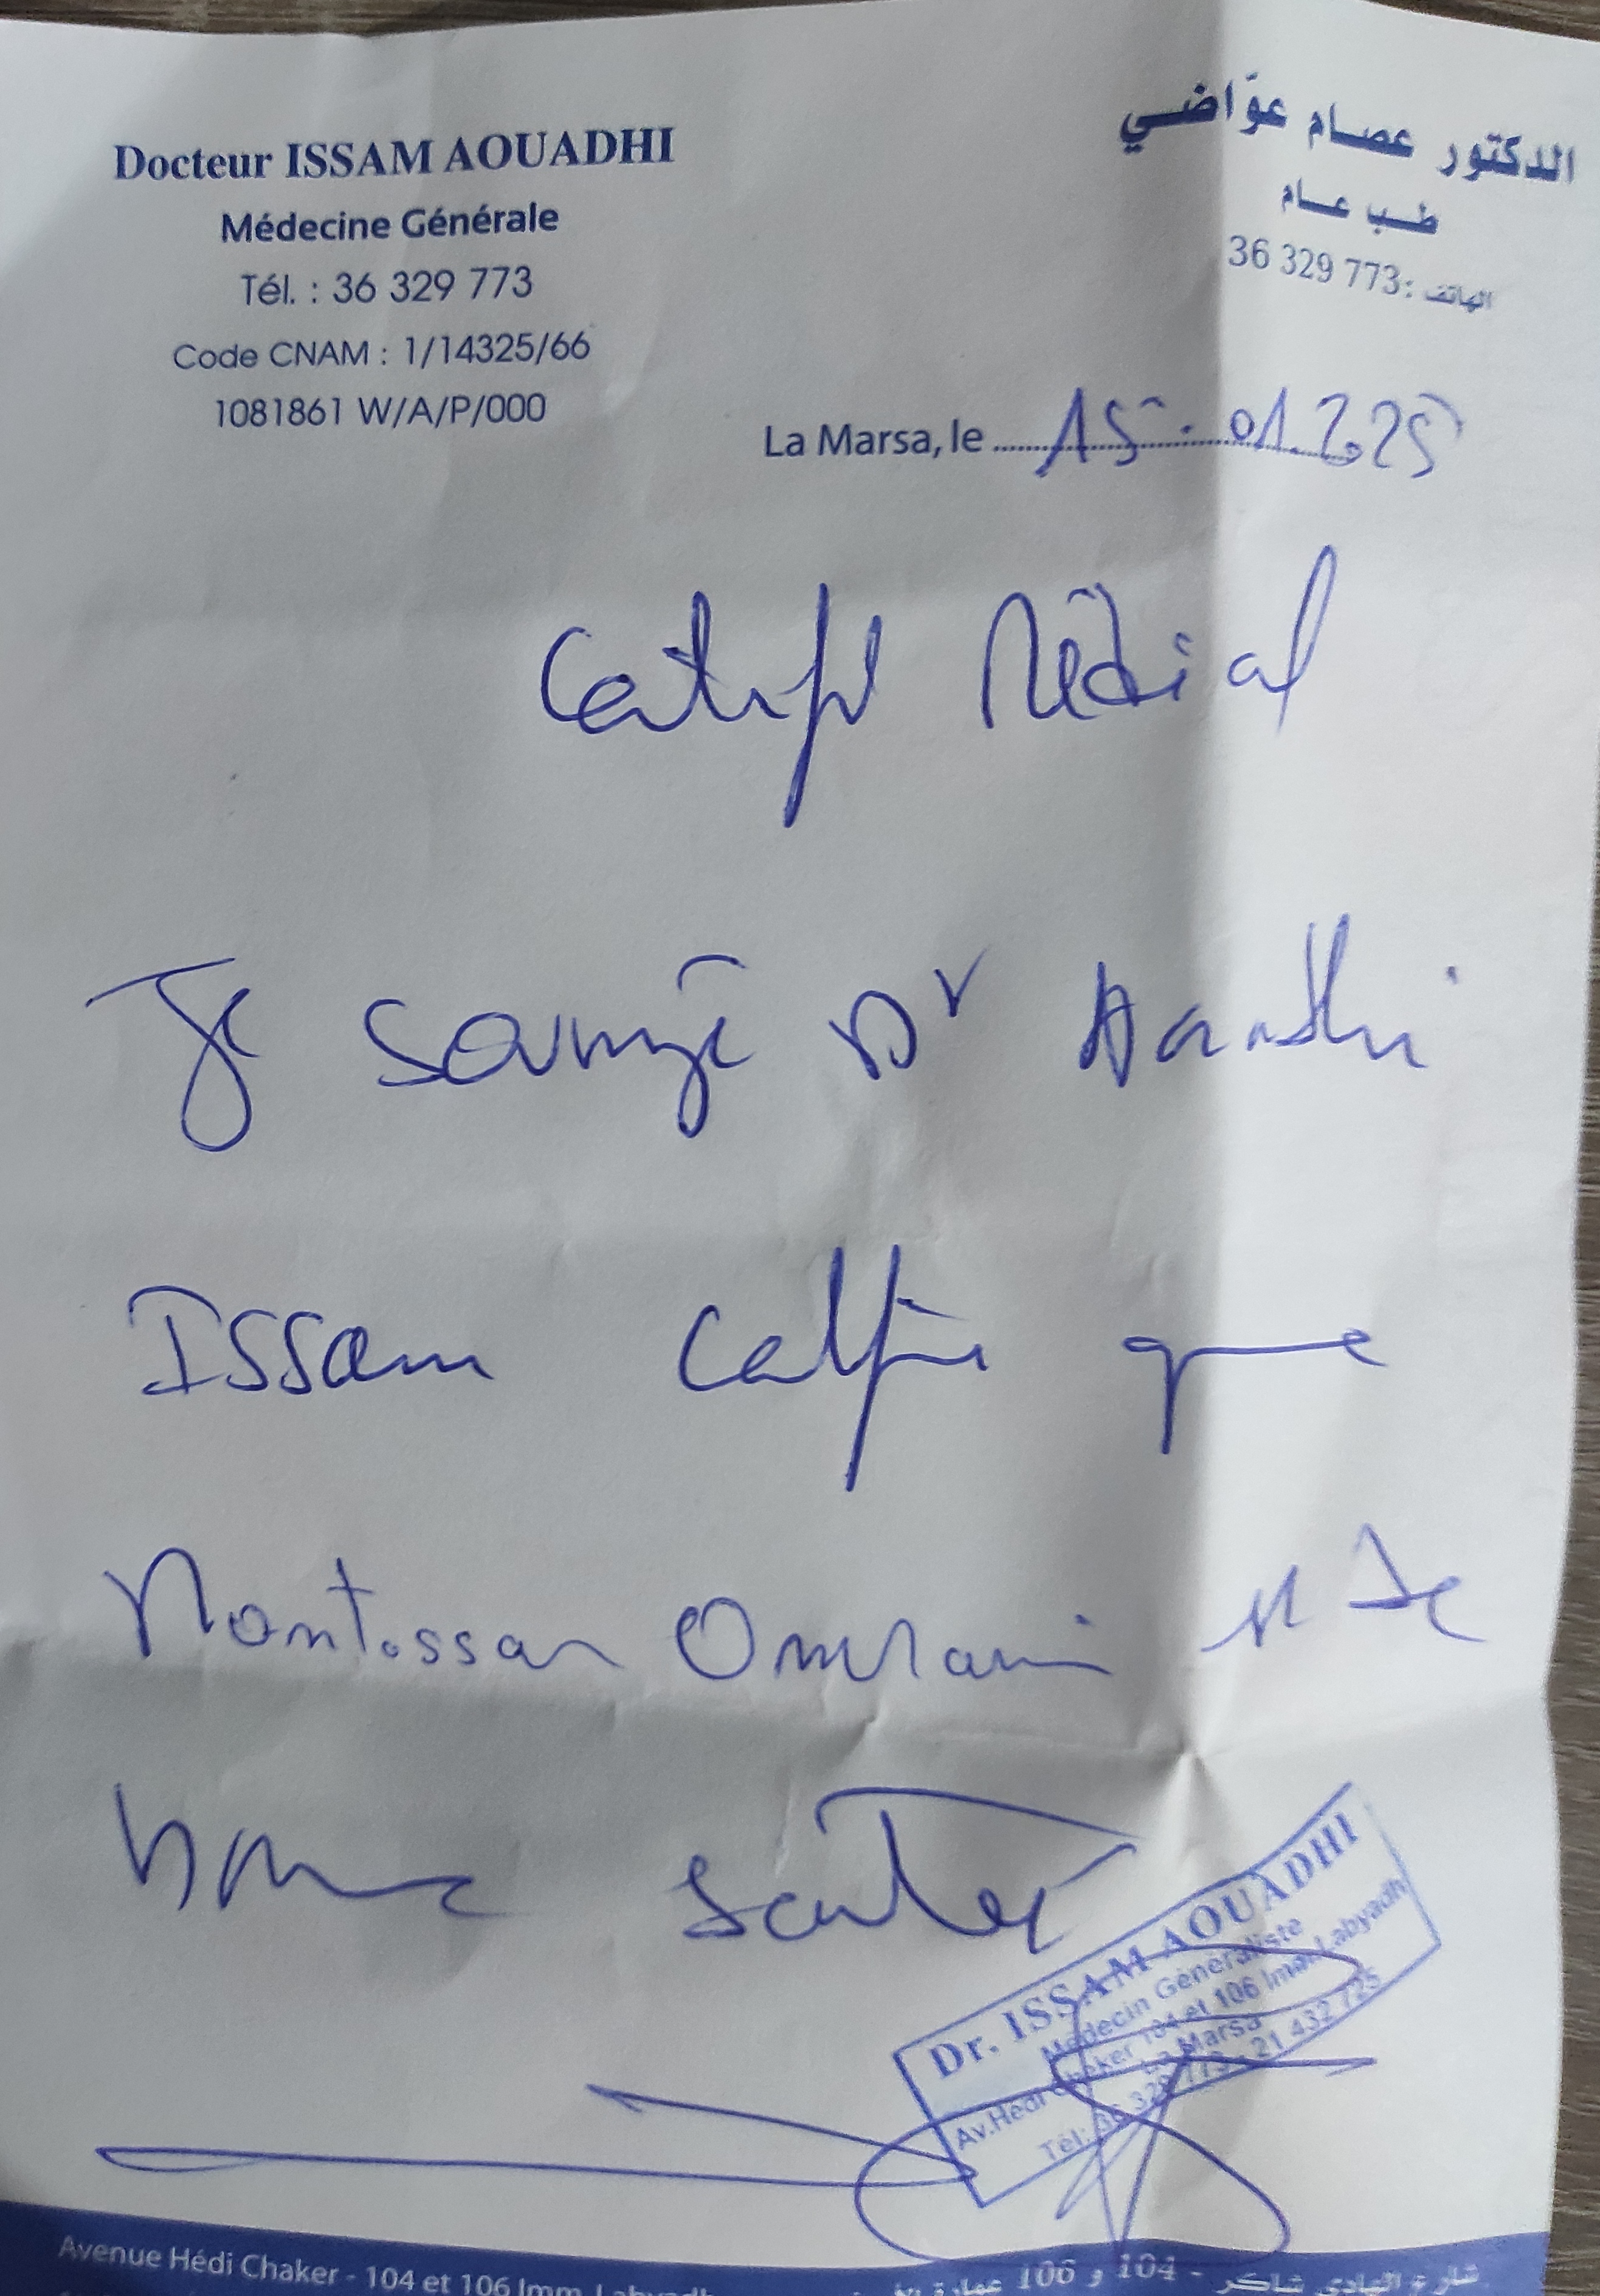 Docteur ISSAM AOUADHI
Médecine Générale
Tél. : 36 329 773
Code CNAM : 1/14325/66
1081861 W/A/P/000
الدكتور عصام عوّاضي
طب عام
الهاتف : 36 329 773
La Marsa, le 15.01.2025
Certificat Médical
Je soussigné Dr Aouadhi
Issam Certifie que
Montassar Omrani est de
bonne santé
Dr. ISSAM AOUADHI
Médecin Généraliste
Av.Hédi Chaker 104 et 106 Imm. Labyadh
La Marsa
Tél: 36 329 773 - 21 432 725
Avenue Hédi Chaker - 104 et 106 Imm. Labyadh
شارع الهادي شاكر - 104 و 106 عمارة